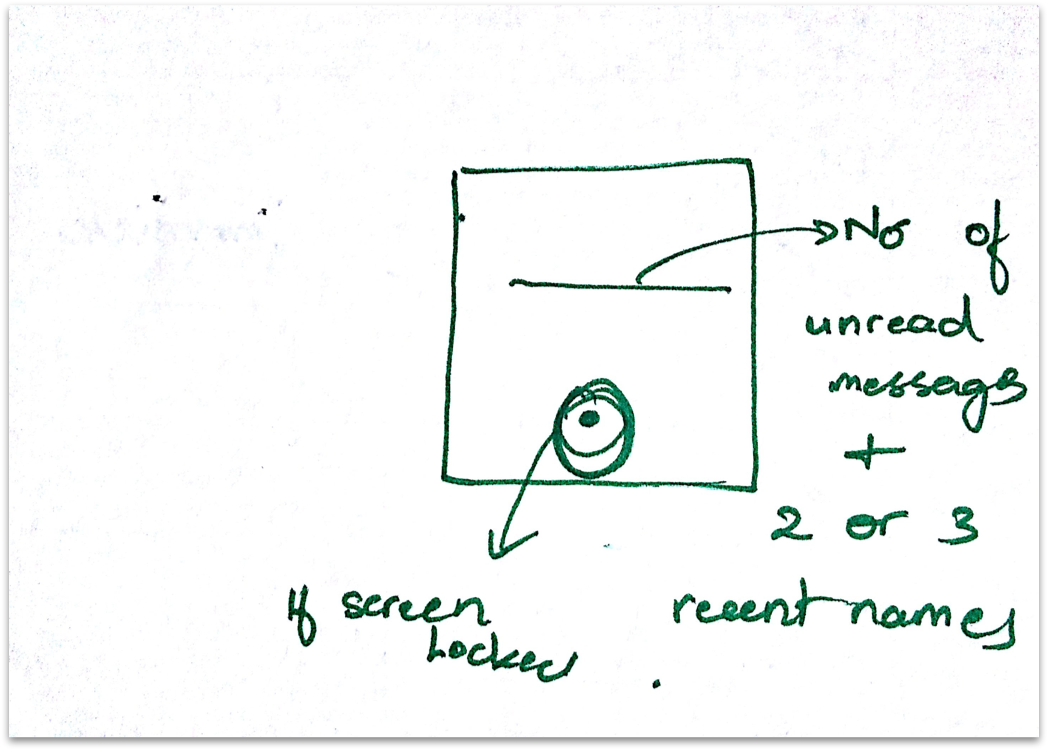 No of
unread
messages
+
2 or 3
recent names
If screen
Locked